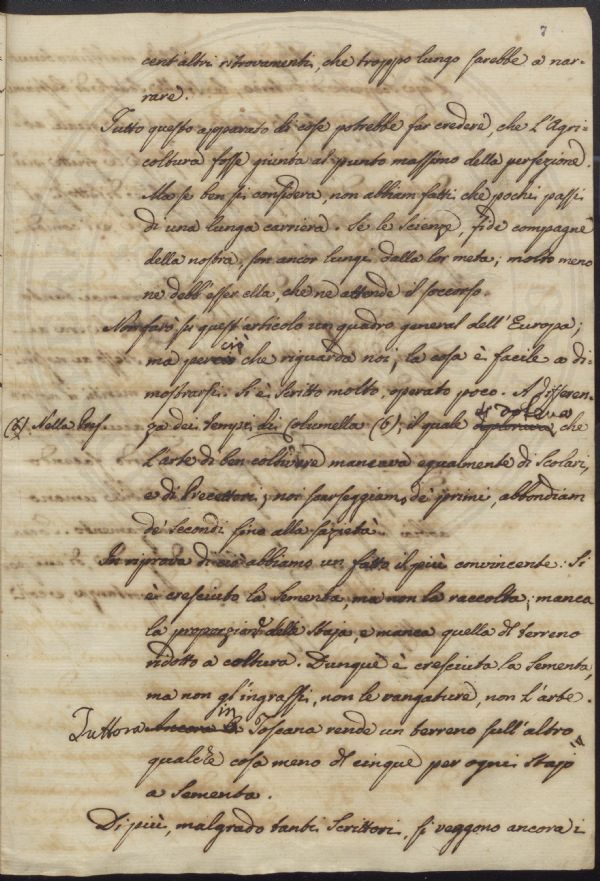 7
cent'altri ritrovamenti, che troppo lungo sarebbe a nar-
rare.
Tutto questo apparato di cose potrebbe far credere, che l'Agri-
coltura fosse giunta al punto massimo della perfezione.
Ma se ben si considera, non abbiam fatti che pochi passi
di una lunga carriera. Se le Scienze, fide compagne
della nostra, son ancor lungi dalla lor meta; molto meno
ne debb'esser ella, che ne attende il soccorso.
Non farò su quest'articolo un quadro general dell'Europa;
ma per ciò che riguarda noi, la cosa è facile a di-
mostrarsi. Si è scritto molto, operato poco. A differen-
(6) Nella Pref. za dei tempi di Columella (6), il quale si doleva che
l'arte di ben coltivare mancava egualmente di Scolari,
e di Precettori; noi scarseggiam de' primi, abbondiam
de' secondi fino alla sazietà.
In riprova di ciò abbiamo un fatto il più convincente. Si
è cresciuta la Sementa, ma non la raccolta; manca
la proporzion delle staja, e manca quella del terreno
ridotto a coltura. Dunque è cresciuta la Sementa,
ma non gl'ingrassi, non le vangature, non l'arte.
Tuttora in Toscana rende un terreno sull'altro
qualche cosa meno di cinque per ogni Stajo
a Sementa.
Di più, malgrado tanti Scrittori, si veggono ancora i